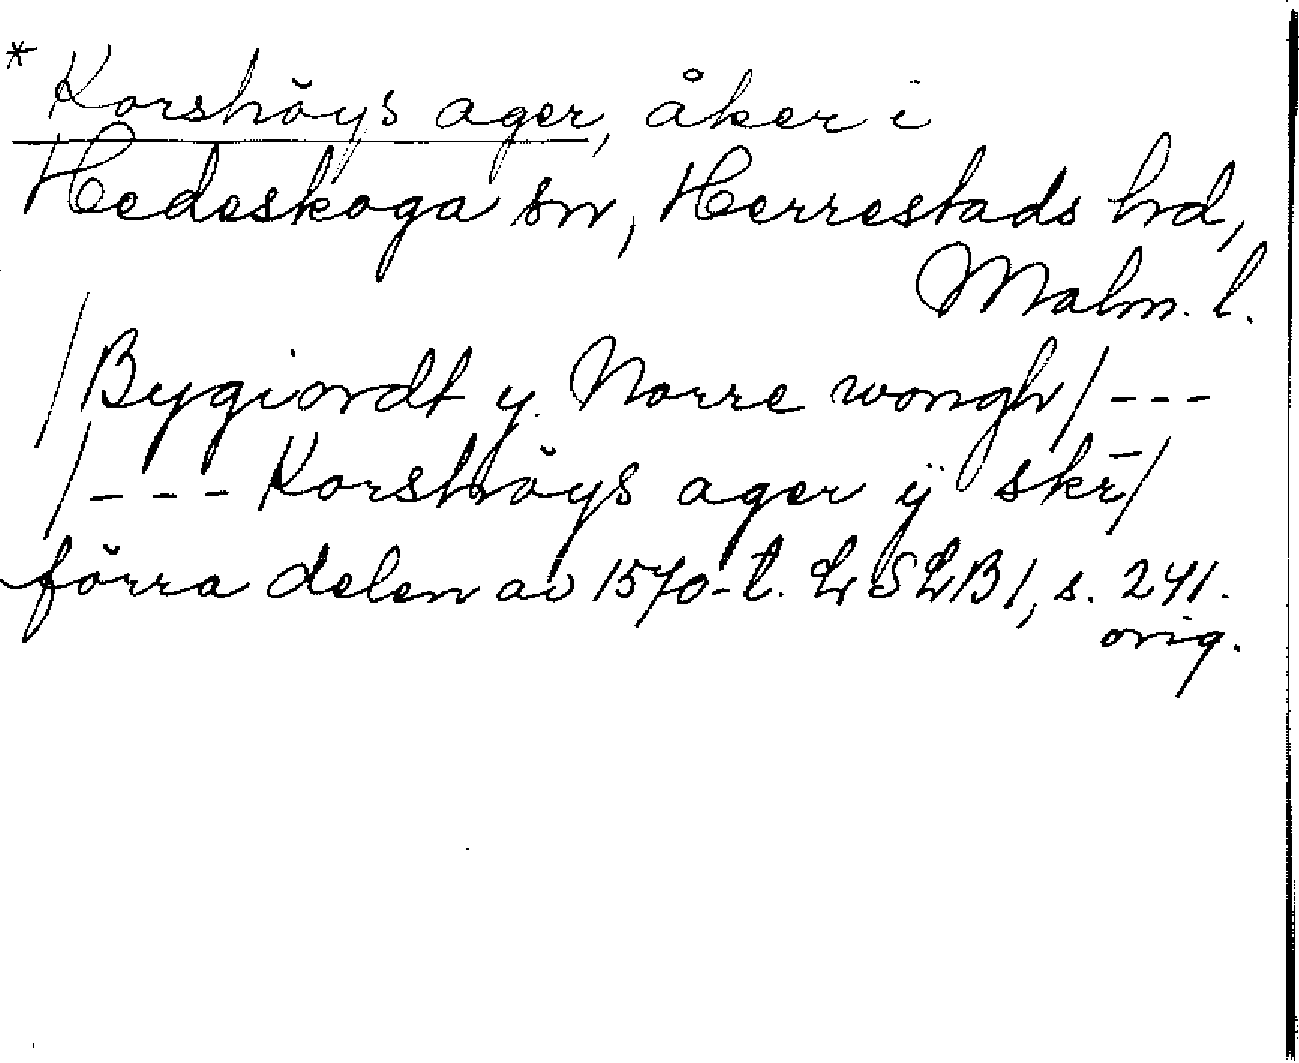 * Korshöys ager, åker i
Hedeskoga sn, Herrestads hd,
Malm. l.
/Bygiordt y. Norre wongh/ ---
/--- Korshöys ager ÿ skr̄/
förra delen av 1570-t. LSLB1, s. 241.
orig.